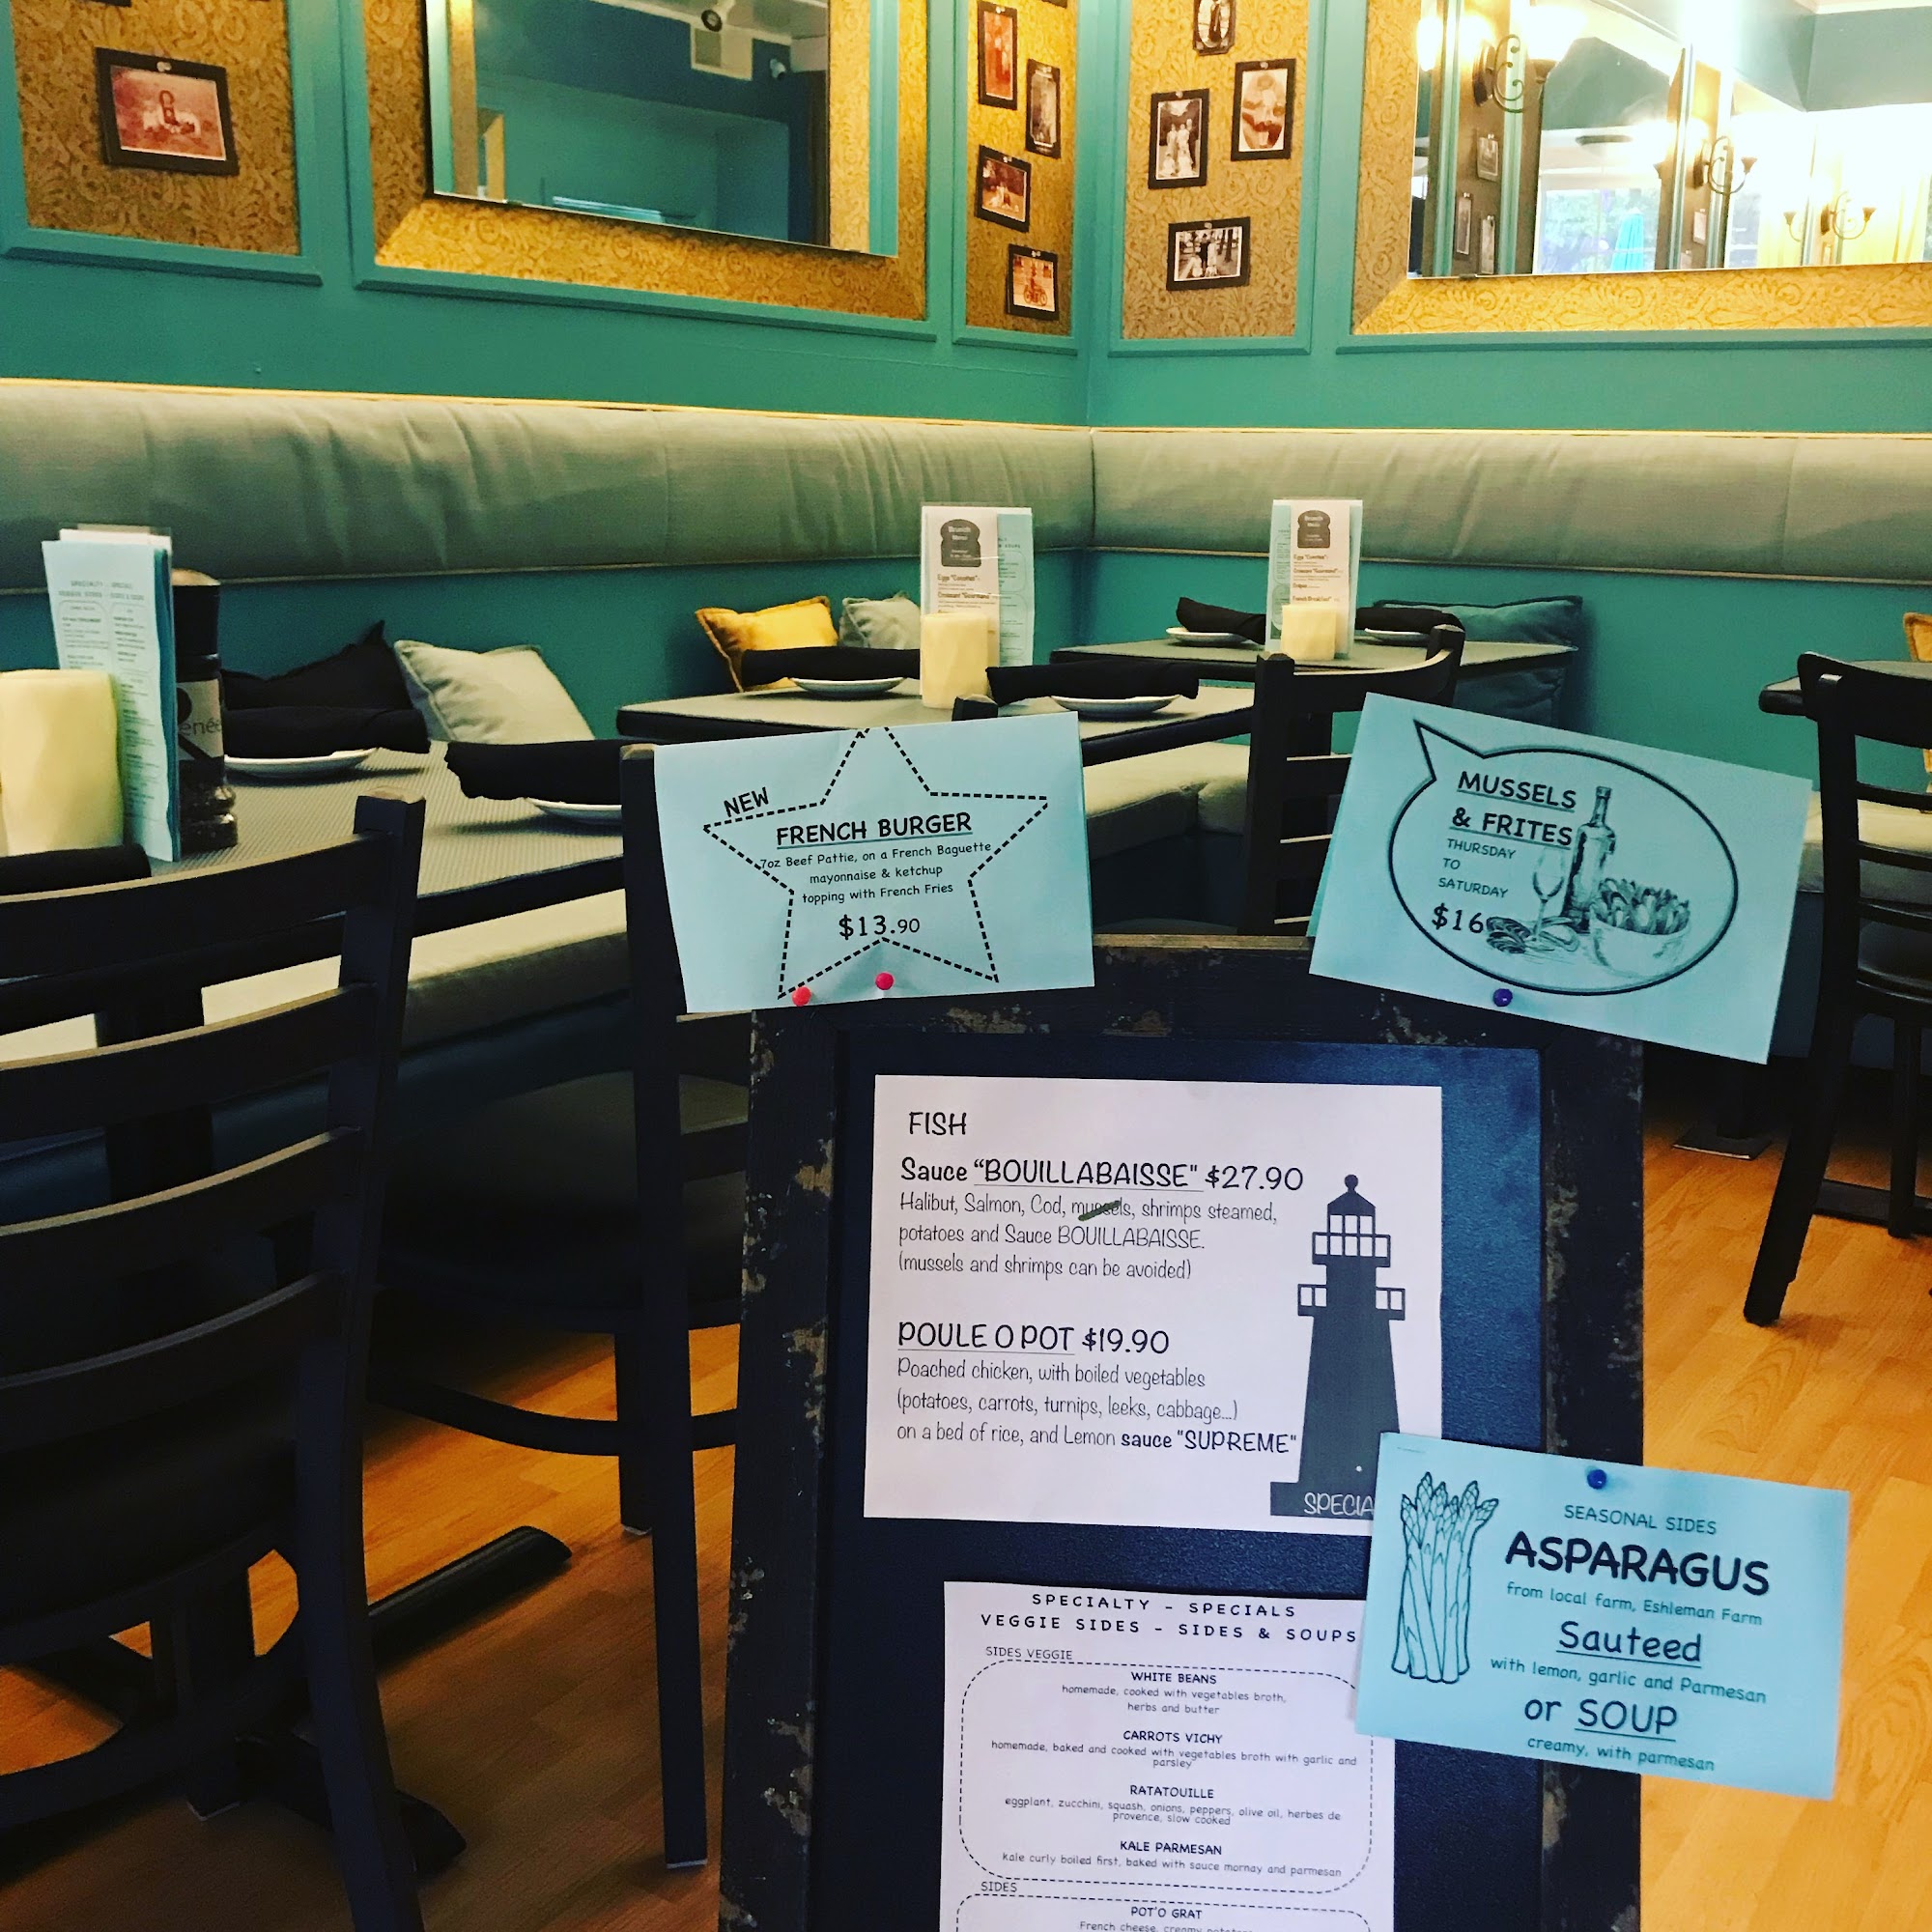 NEW
FRENCH BURGER
7oz Beef Pattie, on a French Baguette
mayonnaise & ketchup
topping with French Fries
$13.90
MUSSELS
& FRITES
THURSDAY
TO
SATURDAY
$16
FISH
Sauce "BOUILLABAISSE" $27.90
Halibut, Salmon, Cod, mussels, shrimps steamed,
potatoes and Sauce BOUILLABAISSE.
(mussels and shrimps can be avoided)
POULE O POT $19.90
Poached chicken, with boiled vegetables
(potatoes, carrots, turnips, leeks, cabbage...)
on a bed of rice, and Lemon sauce "SUPREME"
SPECIA
SEASONAL SIDES
ASPARAGUS
from local farm, Eshleman Farm
Sauteed
with lemon, garlic and Parmesan
or SOUP
creamy, with parmesan
SPECIALTY - SPECIALS
VEGGIE SIDES - SIDES & SOUPS
SIDES VEGGIE
WHITE BEANS
homemade, cooked with vegetables broth,
herbs and butter
CARROTS VICHY
homemade, baked and cooked with vegetables broth with garlic and
parsley
RATATOUILLE
eggplant, zucchini, squash, onions, peppers, olive oil, herbes de
provence, slow cooked
KALE PARMESAN
kale curly boiled first, baked with sauce mornay and parmesan
SIDES
POT'O GRAT
French cheese, creamy
Brunch
Menu
Brunch
Menu